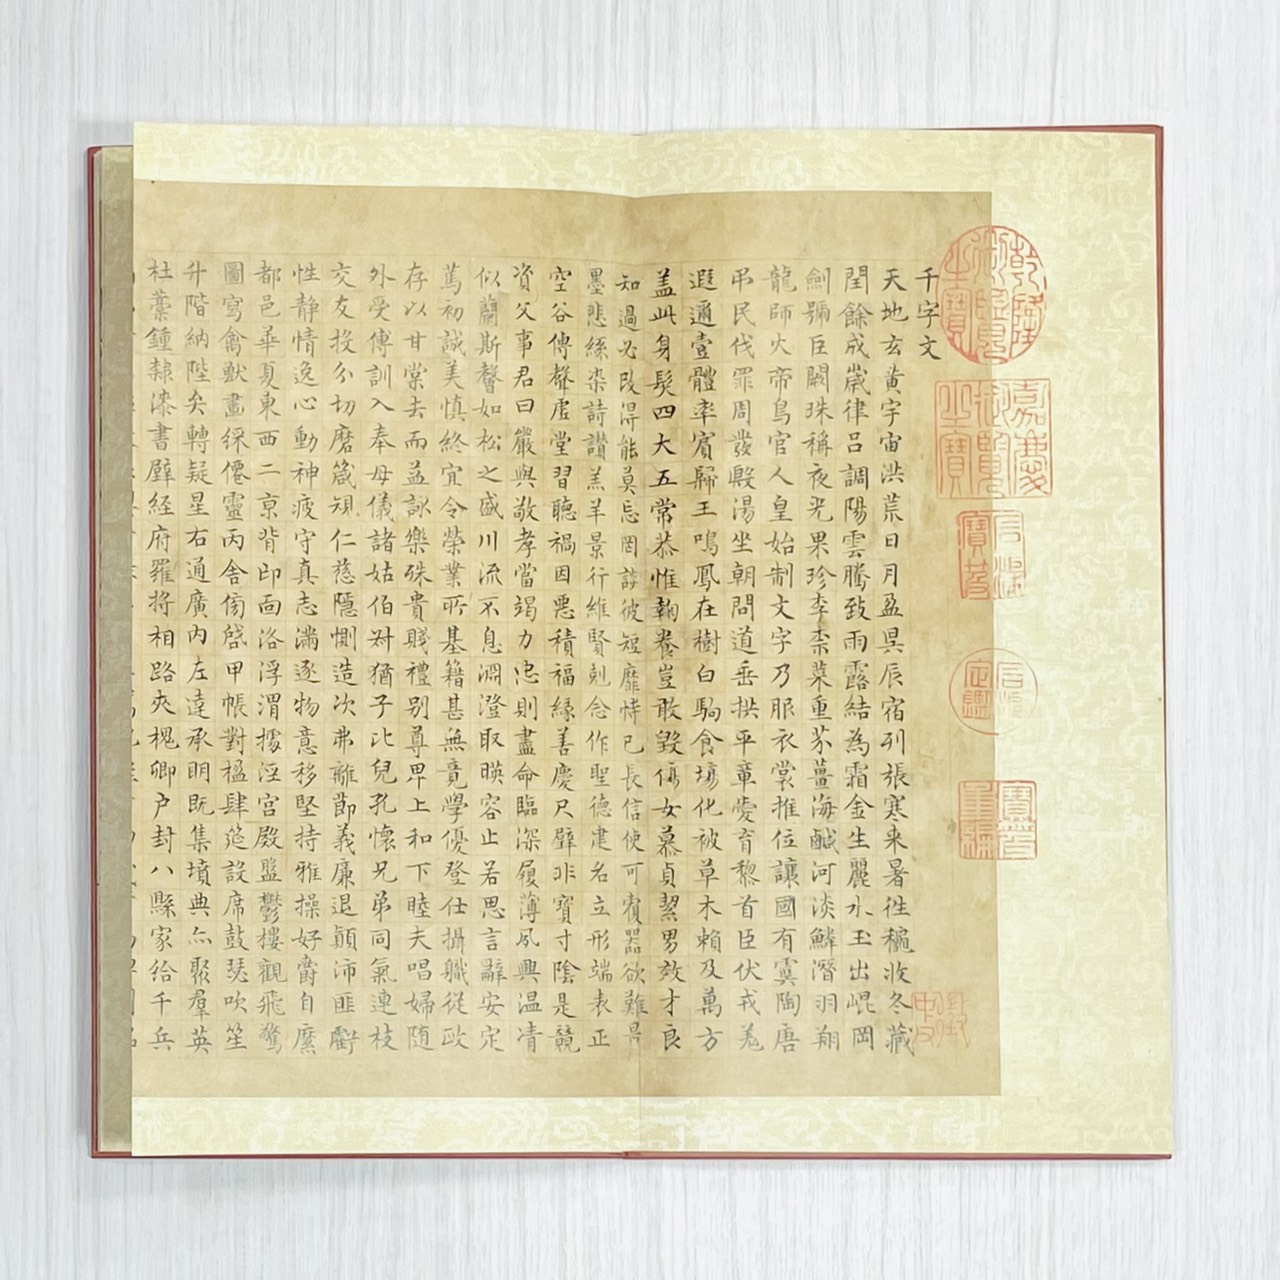 乾隆御覽之寶
嘉慶御覽之寶
石渠寶笈
石渠定鑑
寶笈重編
千字文
天地玄黄宇宙洪荒日月盈昃辰宿列張寒来暑往穐收冬藏
閏餘成歲律吕調陽雲騰致雨露結為霜金生麗水玉出崐岡
劍號巨闕珠稱夜光果珍李柰菜重芥薑海鹹河淡鱗潛羽翔
龍師火帝鳥官人皇始制文字乃服衣裳推位讓國有虞陶唐
弔民伐罪周發殷湯坐朝問道垂拱平章愛育黎首臣伏戎羌
遐邇壹體率賓歸王鳴鳳在樹白駒食場化被草木賴及萬方
盖此身髮四大五常恭惟鞠養豈敢毀傷女慕貞絜男效才良
知過必改得能莫忘罔談彼短靡恃己長信使可覆器欲難量
墨悲絲染詩讚羔羊景行維賢剋念作聖德建名立形端表正
空谷傳聲虛堂習聽禍因惡積福緣善慶尺璧非寶寸陰是競
資父事君曰嚴與敬孝當竭力忠則盡命臨深履薄夙興温凊
似蘭斯馨如松之盛川流不息淵澄取暎容止若思言辭安定
篤初誠美慎終宜令榮業所基籍甚無竟學優登仕攝職從政
存以甘棠去而益詠樂殊貴賤禮别尊卑上和下睦夫唱婦随
外受傅訓入奉母儀諸姑伯叔猶子比兒孔懷兄弟同氣連枝
交友投分切磨箴規仁慈隱惻造次弗離節義廉退顛沛匪虧
性静情逸心動神疲守真志滿逐物意移堅持雅操好爵自縻
都邑華夏東西二京背邙面洛浮渭據涇宫殿盤鬱樓觀飛驚
圖寫禽獸畫綵僊靈丙舍傍啓甲帳對楹肆筵設席鼓瑟吹笙
升階納陛弁轉疑星右通廣内左達承明既集墳典亦聚羣英
杜藁鍾隸漆書壁經府羅将相路夾槐卿户封八縣家給千兵